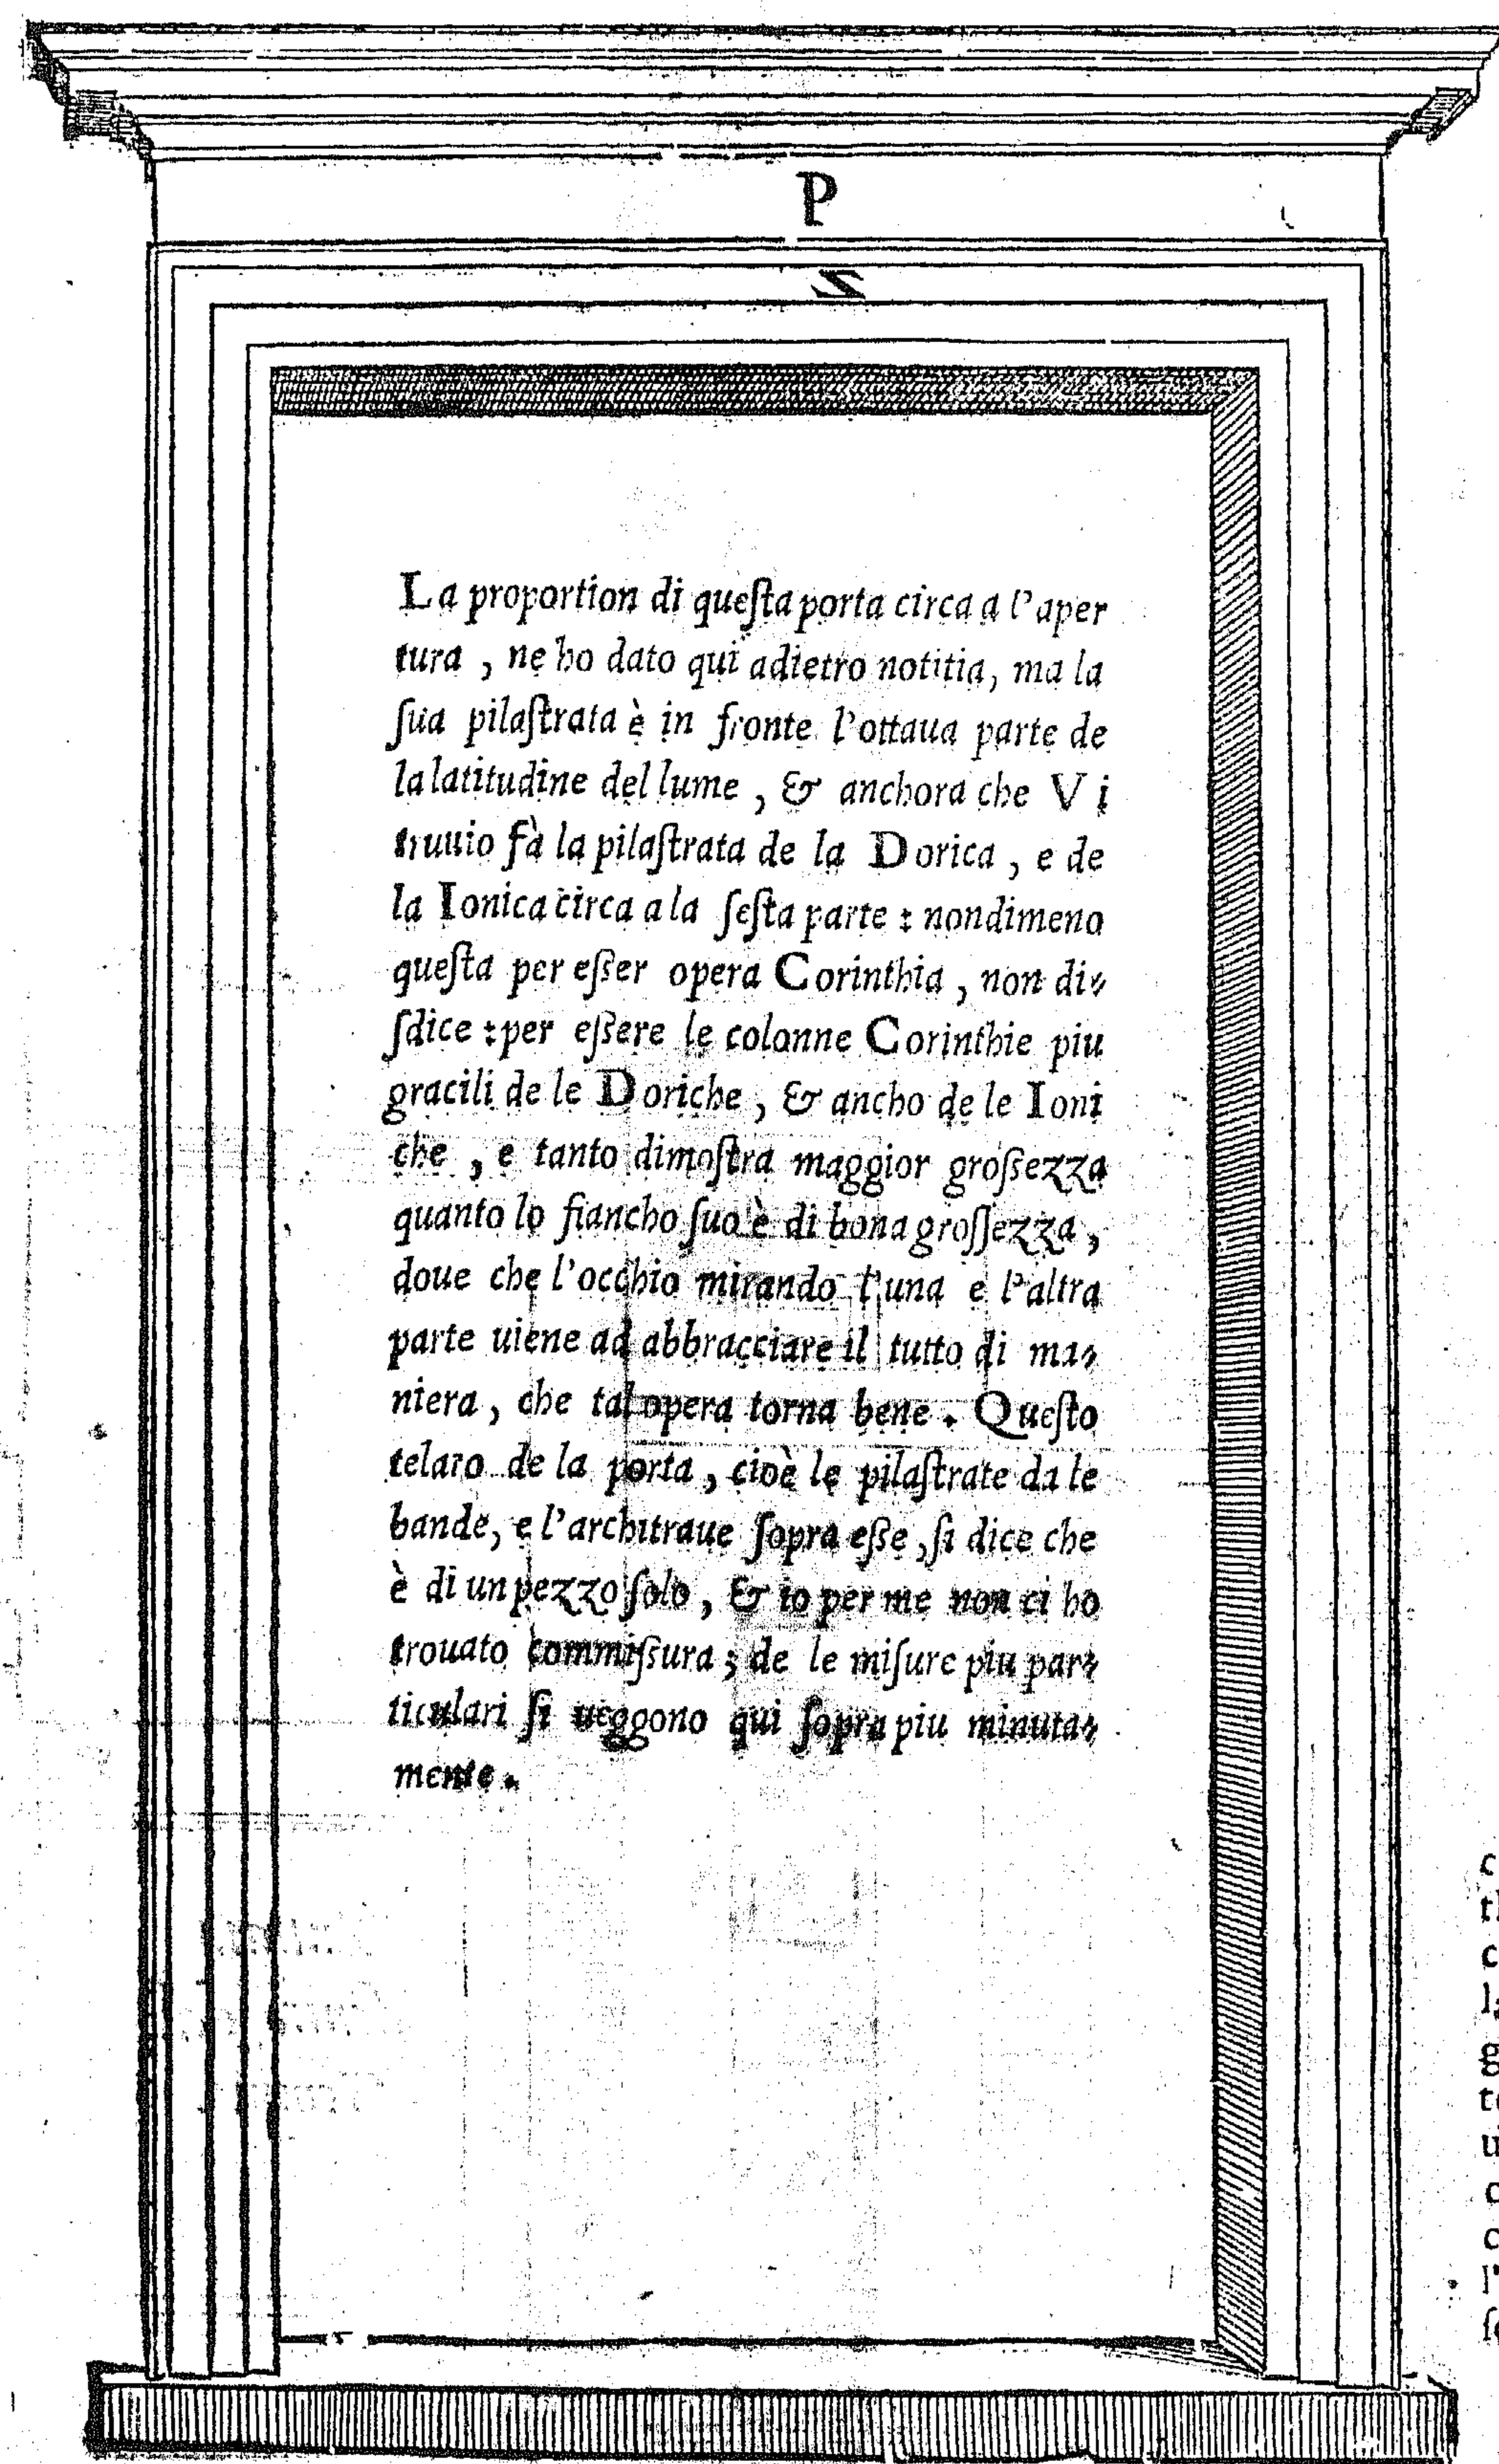 P
Z
La proportion di queſta porta circa a l'aper
tura , ne ho dato qui adietro notitia, ma la
ſua pilaſtrata è in fronte l'ottaua parte de
la latitudine del lume , & anchora che Vi
truuio fà la pilaſtrata de la Dorica , e de
la Ionica circa a la ſeſta parte : nondimeno
queſta per eſſer opera Corinthia , non di-
ſdice : per eſſere le colonne Corinthie piu
gracili de le Doriche , & ancho de le Ioni
che , e tanto dimoſtra maggior groſſezza
quanto lo fiancho ſuo è di bona groſſezza ,
doue che l'occhio mirando l'una e l'altra
parte uiene ad abbracciare il tutto di ma-
niera , che tal opera torna bene . Queſto
telaro de la porta , cioè le pilaſtrate da le
bande, e l'architraue ſopra eſſe , ſi dice che
è di un pezzo ſolo , & io per me non ci ho
trouato commiſſura ; de le miſure piu par-
ticulari ſi ueggono qui ſopra piu minuta-
mente .